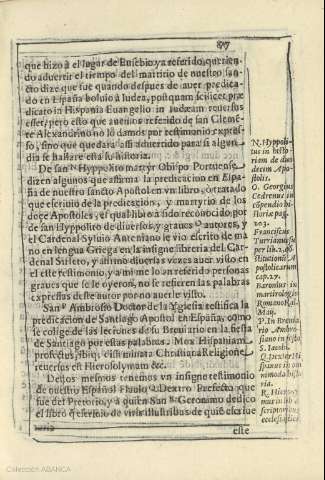 87
que hizo à el lugar de Eusebio ya referido, querien-
do advertir el tiempo del martirio de nuestro san-
cto dize que fue quando despues de aver predica-
do en España boluio à Iudea, postquam scilicet præ-
dicato in Hispania Euangelio in Iudæam reuersus
esset, pero esto que auemos referido de san Cleme-
te Alexandrino no lo damos por testimonio expres-
so, sino que quedara assi advertido para si algun
dia se hallare esta su historia.
De san Hyppolito martyr Obispo Portuense
dizen algunos que afirma la predicacion en Espa-
ña de nuestro sancto Apostol en vn libro, o tratado
que escriuio de la predicacion, y martyrio de los
doce Apostoles, el qual libro a sido reconocido por
de san Hyppolito de diuersos, y graues autores, y
el Cardenal Sylvio Antoniano le vio escrito de ma
no en lengua Griega en la insigne libreria del Car-
denal Sirleto, y
el este testimonio, y a mi me lo an referido personas
graues que se le oyeron, no se refieren las palabras
expressas deste autor por no auerle visto.
San Ambrosio Doctor de la Yglesia testifica la
predicacion de Santiago Apostol en España, como
se colige de las lectiones de su Breuiario en la fiesta
de Santiago por estas palabras. Mox Hispaniam
profectus, ibiq; disseminata Christiana Religione
reuersus est Hierosolymam &c.
Destos mesmos tenemos vn insigne testimonio
de nuestro Español Flauio Dextro Prefecto que
fue del Pretorio, y a quien San Geronimo dedico
el libro q escriuio de viris illustribus de quie escriue
este
R. Hyppoli-
tus in histo
riam de duo
decem Apo-
stolis.
O. Georgius
Cedrenus in
cōpendio hi
storiæ pag.
203.
Franciscus
Turrianus
per lib. 2. cō
stitutionū A-
postolicarum
cap. 27.
Baronius in
martirologio
Romano 25.
P. In Brevia
rio Ambro-
siano in festo
S. Iacobi.
Q. Dexter Hi
spanus in om
nimoda histo
ria.
R. Hieroni-
mus in lib. de
scriptoribus
ecclesiasticis
Colección ABANCA